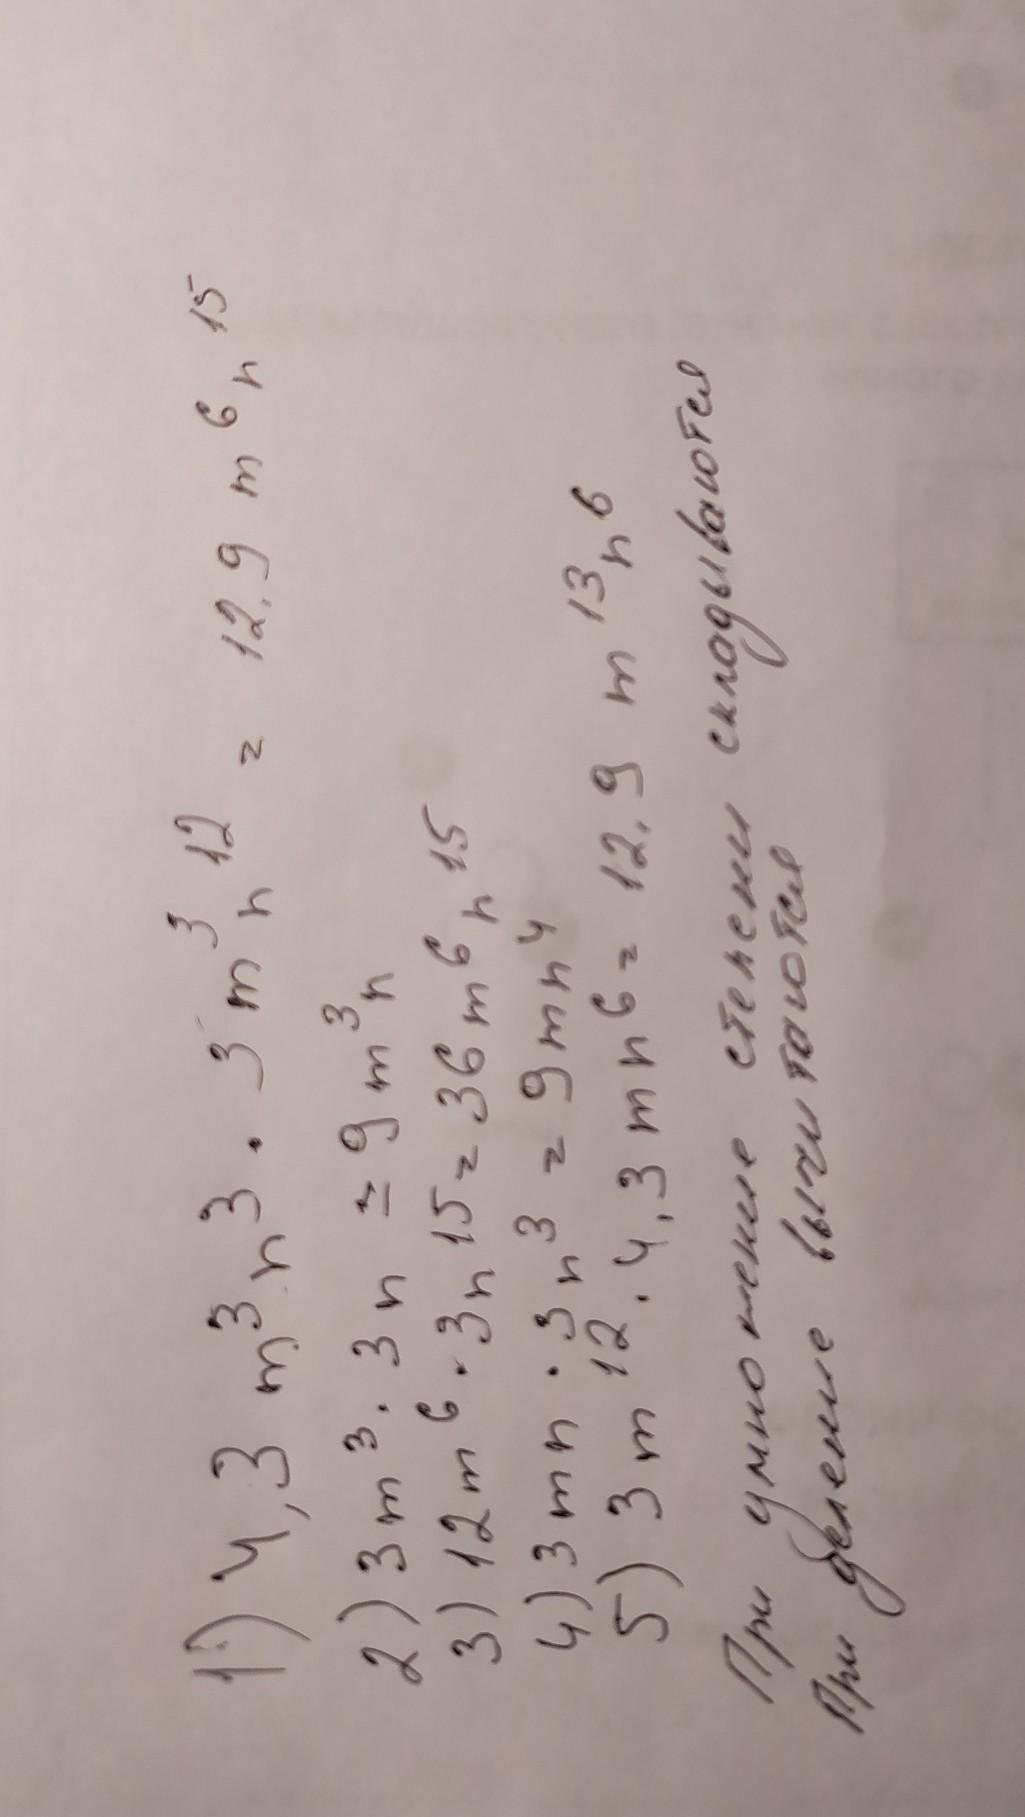 1) 4,3 m³n³ · 3m³n¹² = 12,9 m⁶n¹⁵
2) 3m³ · 3n = 9m³n
3) 12m⁶ · 3n¹⁵ = 36m⁶n¹⁵
4) 3mn · 3n³ = 9mn⁴
5) 3m¹² · 4,3mn⁶ = 12,9 m¹³n⁶
При умножение степени складываются
При деление вычитаются